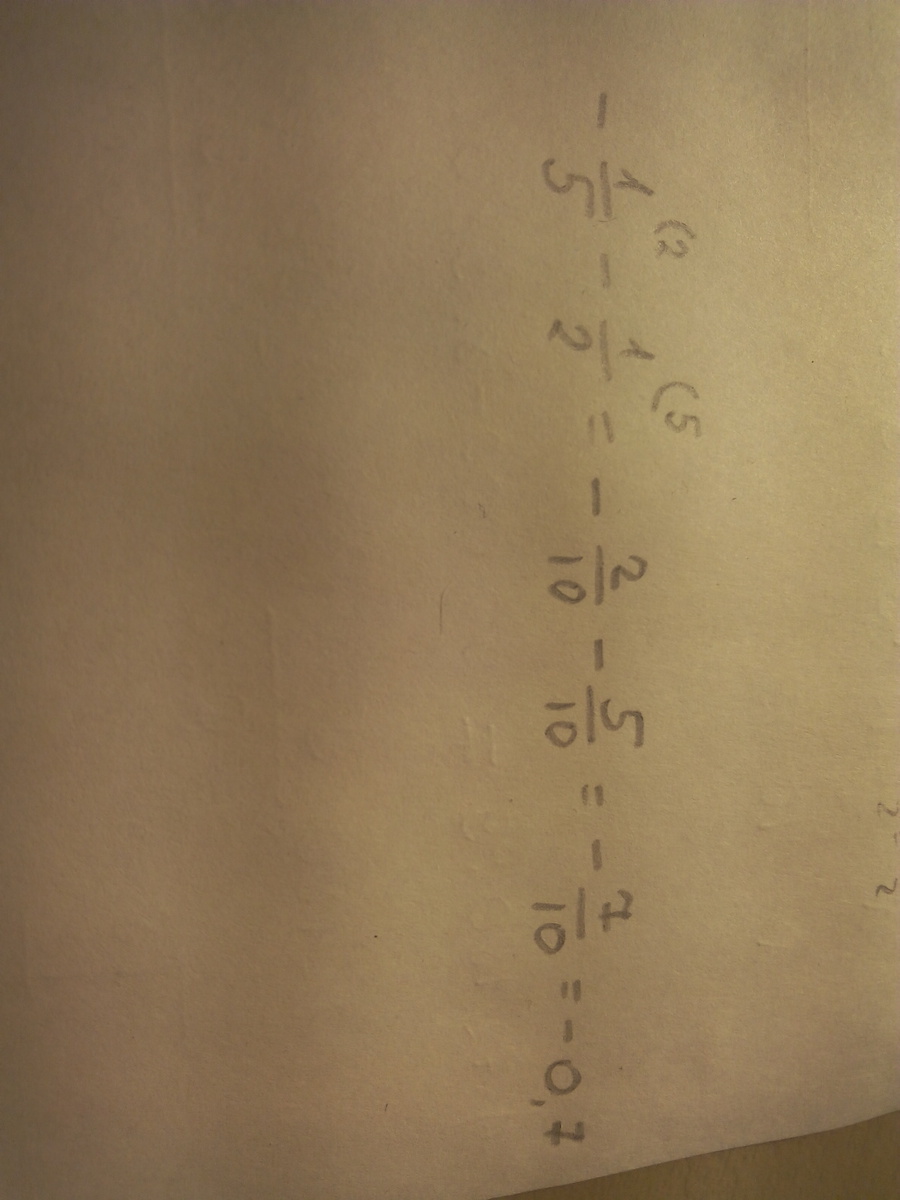 - 1/5 (2 - 1/2 (5 = - 2/10 - 5/10 = - 7/10 = -0,7